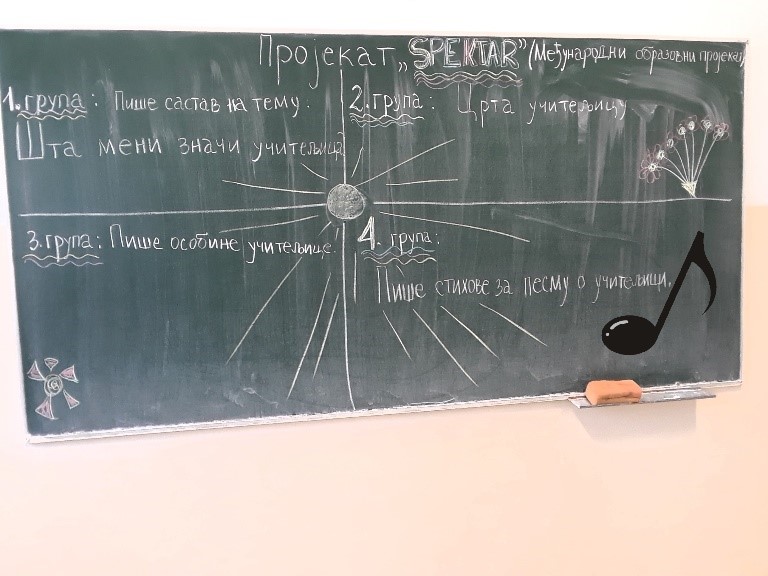 Пројекат „SPEKTAR“ /Међународни образовни пројекат/
1. група: Пише састав на тему.
Шта мени значи учитељица?
2. група: Црта учитељицу
3. група: Пише особине учитељице.
4. група:
Пише стихове за песму о учитељици.